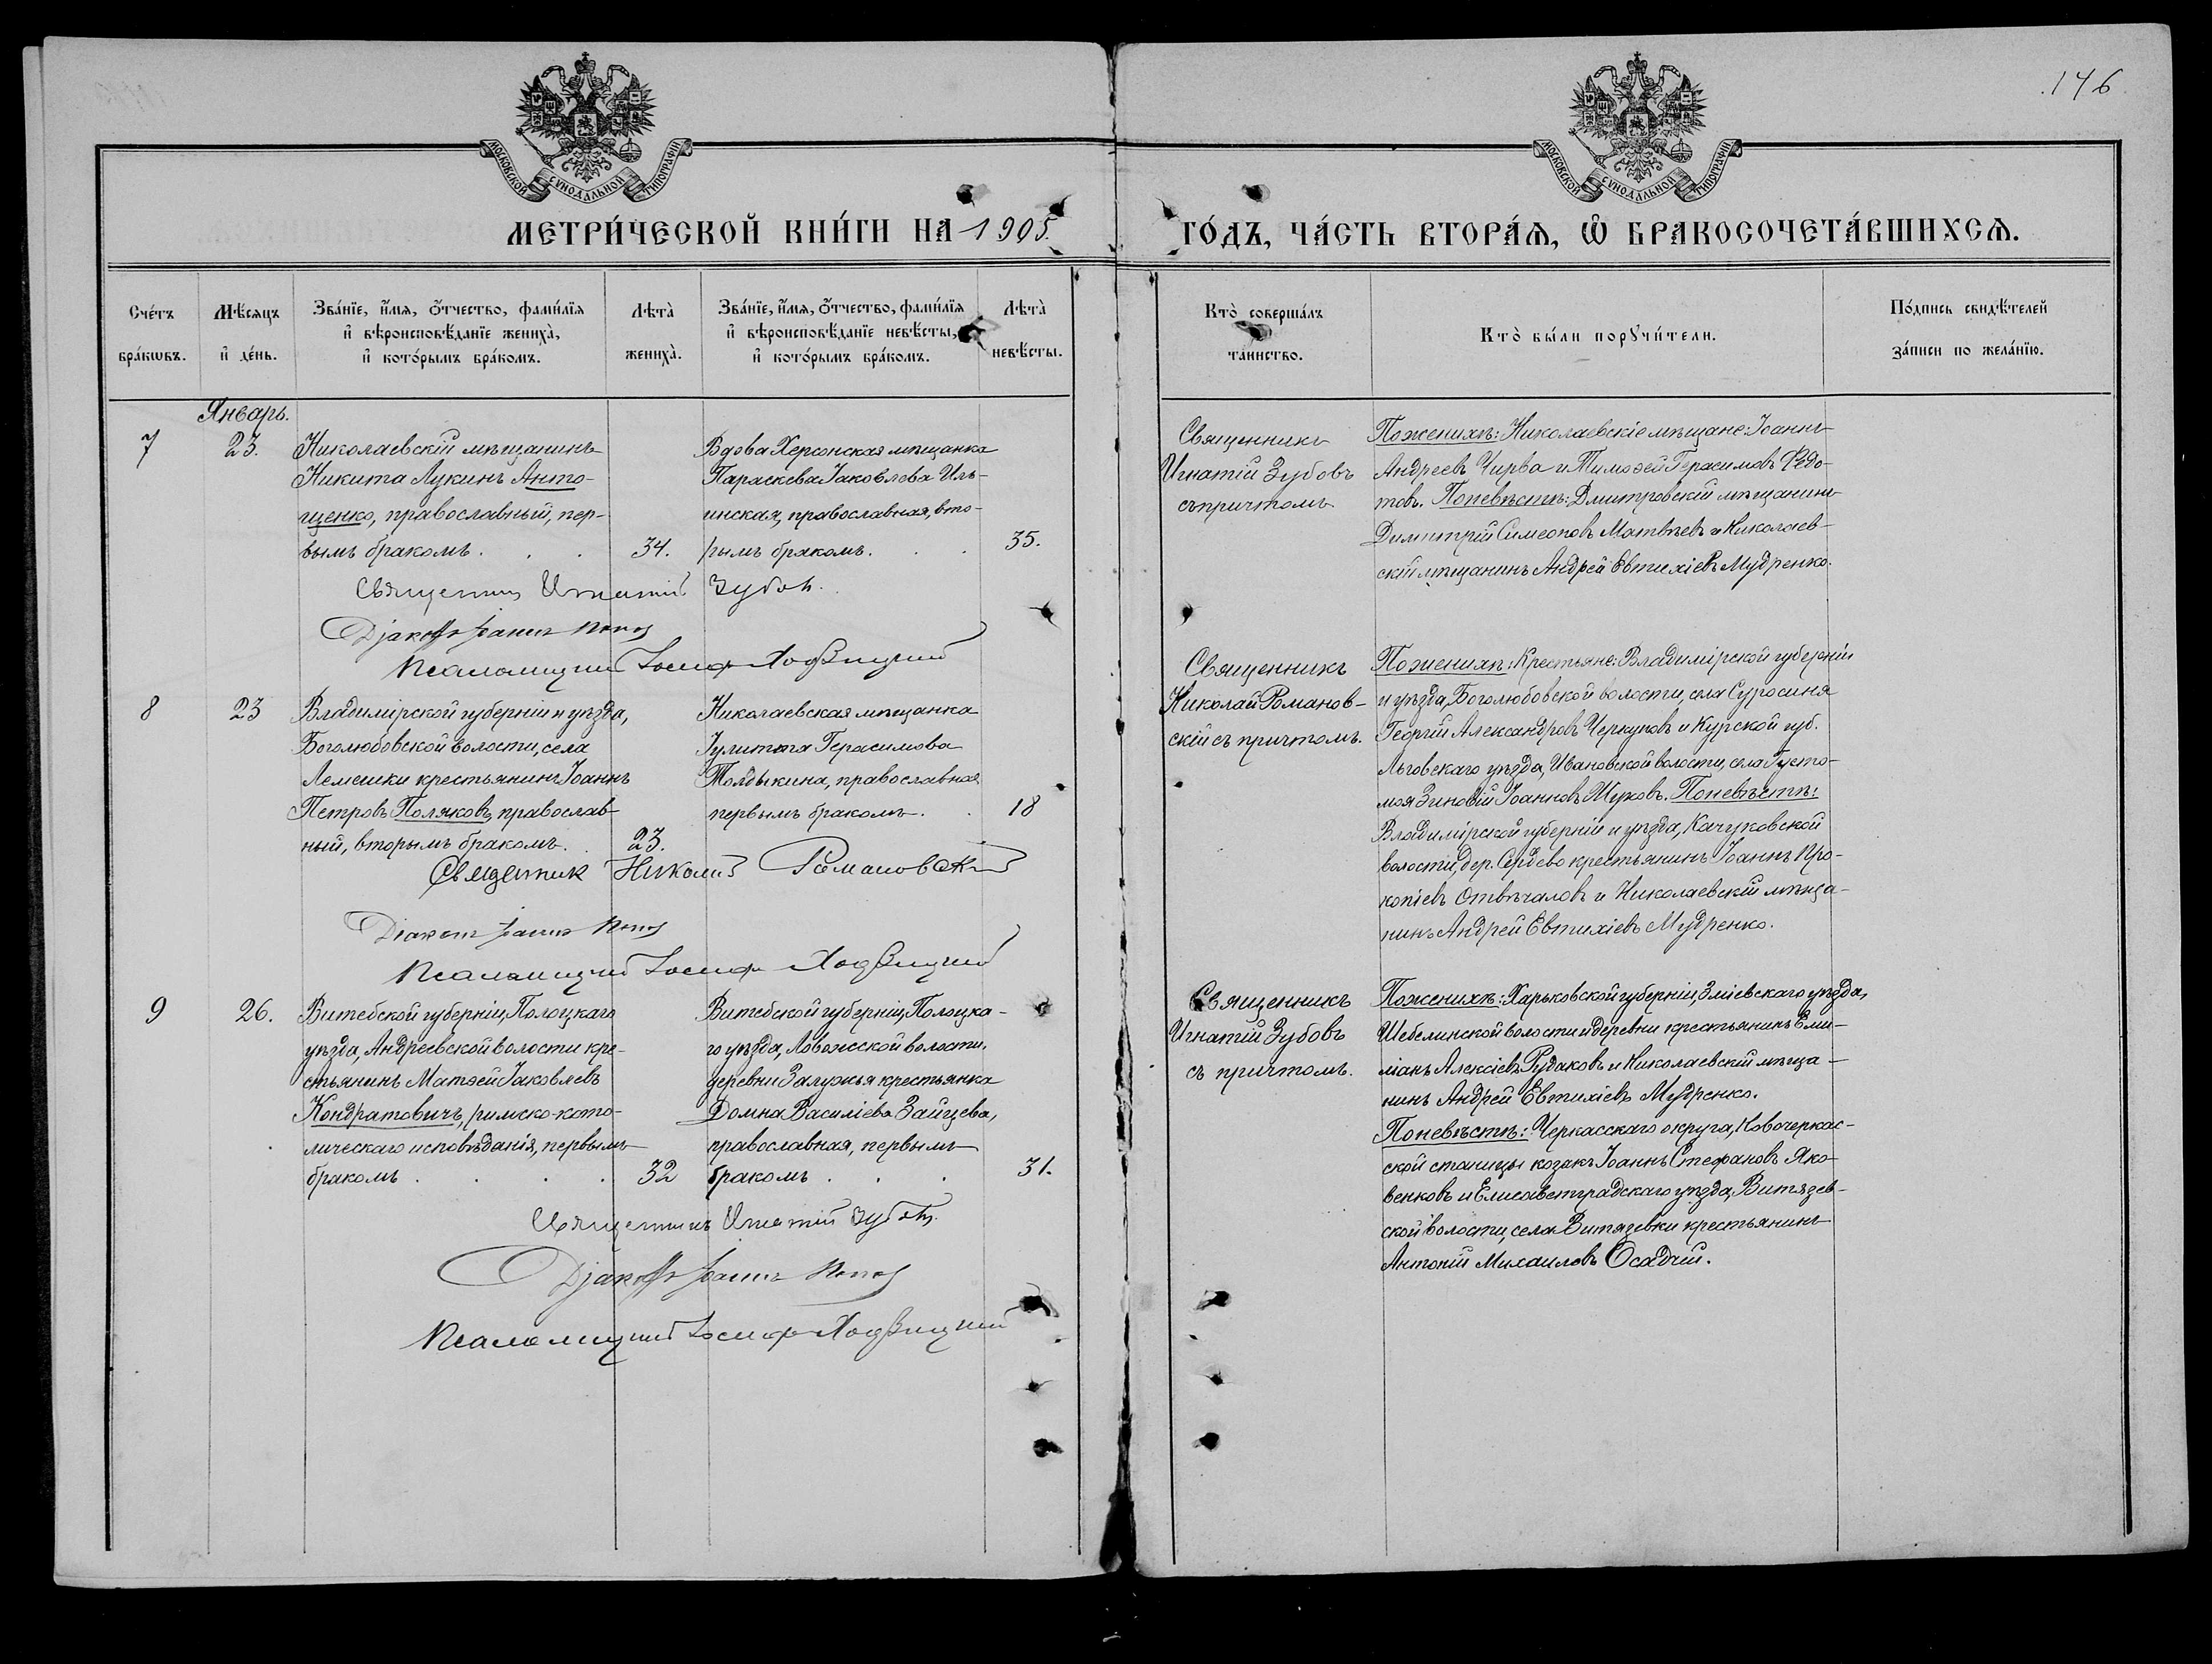 146
МОСКОВСКОЙ СѴНОДАЛЬНОЙ ТИПОГРАФІИ
МОСКОВСКОЙ СѴНОДАЛЬНОЙ ТИПОГРАФІИ
МЕТРИ́ЧЕСКОЙ КНИ́ГИ НА 1905.
ГО́ДЪ, ЧА́СТЬ ВТОРА́Ѧ, Ѡ҆ БРАКОСОЧЕТА́ВШИХСѦ.
Сче́тъ
бра́кѡвъ.
Мѣ́сѧцъ
и҆ де́нь.
Зва́нїе, и҆́мѧ, ѻ҆́тчество, фами́лїѧ
и҆ вѣроисповѣ́данїе жениха̀,
и҆ кото́рымъ бра́комъ.
Лѣта̀
жениха̀.
Зва́нїе, и҆́мѧ, ѻ҆́тчество, фами́лїѧ
и҆ вѣроисповѣ́данїе невѣ́сты,
и҆ кото́рымъ бра́комъ.
Лѣта̀
невѣ́сты.
Кто̀ соверша́лъ
та́инство.
Кто̀ бы́ли порꙋчи́тели.
По́дпись свидѣ́телей
за́писи по жела́нїю.
Январь.
7
23.
Николаевскій мѣщанинъ
Никита Лукинъ Анто-
щенко, православный, пер-
вымъ бракомъ. . .
34.
Вдова Херсонская мѣщанка
Параскева Іаковлева Иль-
инская, православная, вто-
рымъ бракомъ. . .
35.
Священникъ
Игнатій Зубовъ
съ причтомъ
По женихѣ: Николаевскіе мѣщане: Іоаннъ
Андреевъ Чирва и Тимоѳей Герасимовъ Ѳедо-
товъ. По невѣстѣ: Дмитровскій мѣщанинъ
Димитрій Симеоновъ Матвѣевъ и Николаев-
скій мѣщанинъ Андрей Евтихіевъ Мудренко.
Священникъ Игнатій Зубовъ.
Діаконъ Іоаннъ
Псаломщикъ Іосифъ
8
23
Владимірской губерніи и уѣзда,
Боголюбовской волости, села
Лемешки крестьянинъ Іоаннъ
Петровъ Поляковъ, православ-
ный, вторымъ бракомъ.
23.
Николаевская мѣщанка
Іулитта Герасимова
Толдыкина, православная
первымъ бракомъ. .
18
Священникъ
Николай Романов-
скій съ причтомъ.
По женихѣ: Крестьяне: Владимірской губерніи
и уѣзда, Боголюбовской волости, села Суромна
Георгій Александровъ Черкуновъ и Курской губ.
Льговскаго уѣзда, Ивановской волости, села Густо-
моя Зиновій Іоанновъ Жуковъ. По невѣстѣ:
Владимірской губерніи и уѣзда,
волости, дер. крестьянинъ Іоаннъ Про-
копіевъ Отвѣчаловъ и Николаевскій мѣща-
нинъ Андрей Евтихіевъ Мудренко.
Священник Николай Романовскій
Діаконъ Іоаннъ
Псаломщикъ Іосифъ
9
26.
Витебской губерніи, Полоцкаго
уѣзда, Андреевской волости кре-
стьянинъ Матѳей Іаковлевъ
Кондратовичъ, римско-като-
лическаго исповѣданія, первымъ
бракомъ . . . .
32
Витебской губерніи, Полоцка-
го уѣзда, Ловожской волости,
деревни Залужья крестьянка
Домна Василіева Зайцева,
православная, первымъ
бракомъ . . .
31.
Священникъ
Игнатій Зубовъ
съ причтомъ.
По женихѣ: Харьковской губерніи, Зміевскаго уѣзда,
Шебелинской волости и деревни крестьянинъ Еми-
ліанъ Алексіевъ Рудаковъ и Николаевскій мѣща-
нинъ Андрей Евтихіевъ Мудренко.
По невѣстѣ: Черкасскаго округа, Новочеркас-
ской станицы козакъ Іоаннъ Стефановъ Яко-
венковъ и Елисаветградскаго уѣзда, Витязев-
ской волости, села Витязевки крестьянинъ
Антоній Михаиловъ Осадчій.
Священникъ Игнатій Зубовъ.
Діаконъ Іоаннъ
Псаломщикъ Іосифъ